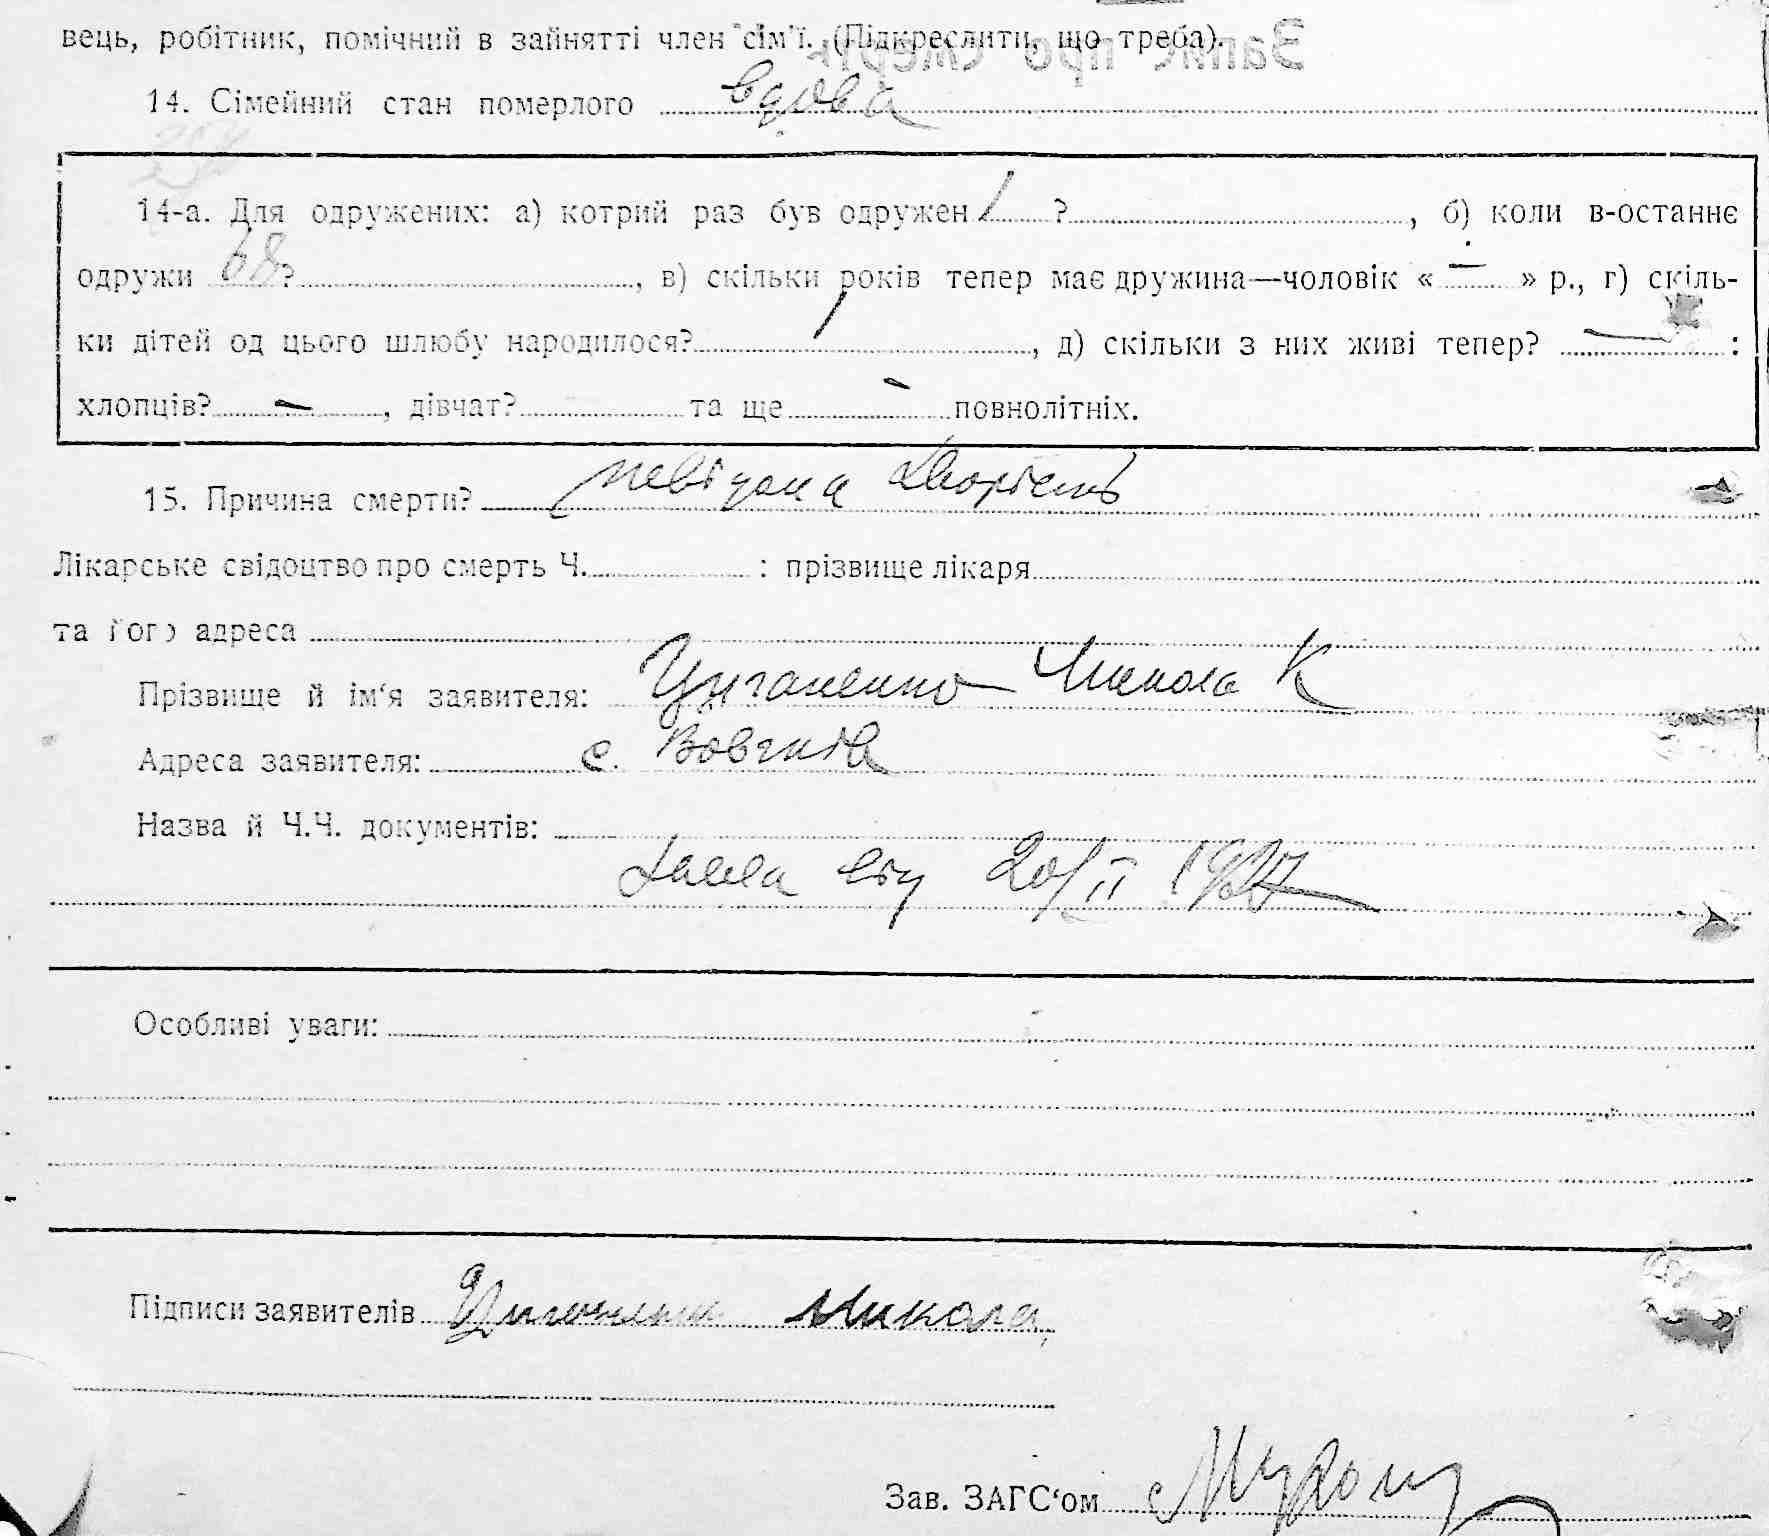 вець, робітник, помічний в зайнятті член сім'ї. (Підкреслити, що треба).
Запис про смерть
14. Сімейний стан померлого вдова
14-а. Для одружених: а) котрий раз був одружен 1 ?, б) коли в-останнє
одружи 68 ?, в) скільки років тепер має дружина—чоловік « — » р., г) скіль-
ки дітей од цього шлюбу народилося?, д) скільки з них живі тепер? — :
хлопців? —, дівчат? та ще — повнолітніх.
15. Причина смерти? невідома
Лікарське свідоцтво про смерть Ч. : прізвище лікаря
та його адреса
Прізвище й ім'я заявителя: Циганенко Микола К
Адреса заявителя: с.
Назва й Ч.Ч. документів:
20/II
Особливі уваги:
Підписи заявителів Циганенко Микола
Зав. ЗАГС'ом